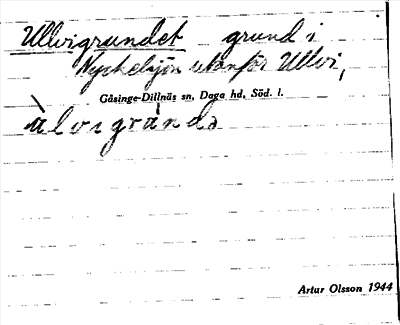 Ullvigrundet grund i
Nyckelsjön utanför Ullvi,
Gåsinge-Dillnäs sn, Daga hd, Söd. l.
Artur Olsson 1944